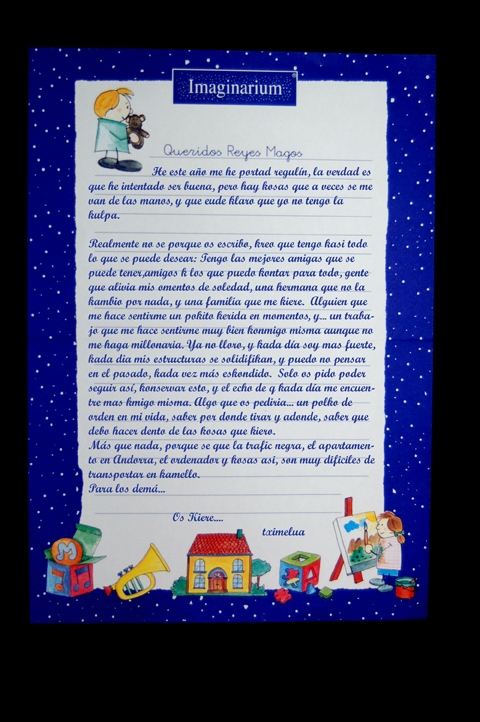 Imaginarium
Queridos Reyes Magos
He este año me he portad regulín, la verdad es
que he intentado ser buena, pero hay kosas que a veces se me
van de las manos, y que eude klaro que yo no tengo la
kulpa.
Realmente no se porque os escribo, kreo que tengo kasi todo
lo que se puede desear: Tengo las mejores amigas que se
puede tener,amigos k los que puedo kontar para todo, gente
que alivia mis omentos de soledad, una hermana que no la
kambio por nada, y una familia que me kiere. Alguien que
me hace sentirme un pokito kerida en momentos, y... un traba-
jo que me hace sentirme muy bien konmigo misma aunque no
me haga millonaria. Ya no lloro, y kada día soy mas fuerte,
kada dia mis estructuras se solidifikan, y puedo no pensar
en el pasado, kada vez más eskondido. Solo os pido poder
seguir así, konservar esto, y el echo de q kada día me encuen-
tre mas kmigo misma. Algo que os pediria... un polko de
orden en mi vida, saber por donde tirar y adonde, saber que
debo hacer dento de las kosas que kiero.
Más que nada, porque se que la trafic negra, el apartamen-
to en Andorra, el ordenador y kosas asi, son muy dificiles de
transportar en kamello.
Para los demá...
Os Kiere....
tximelua
M